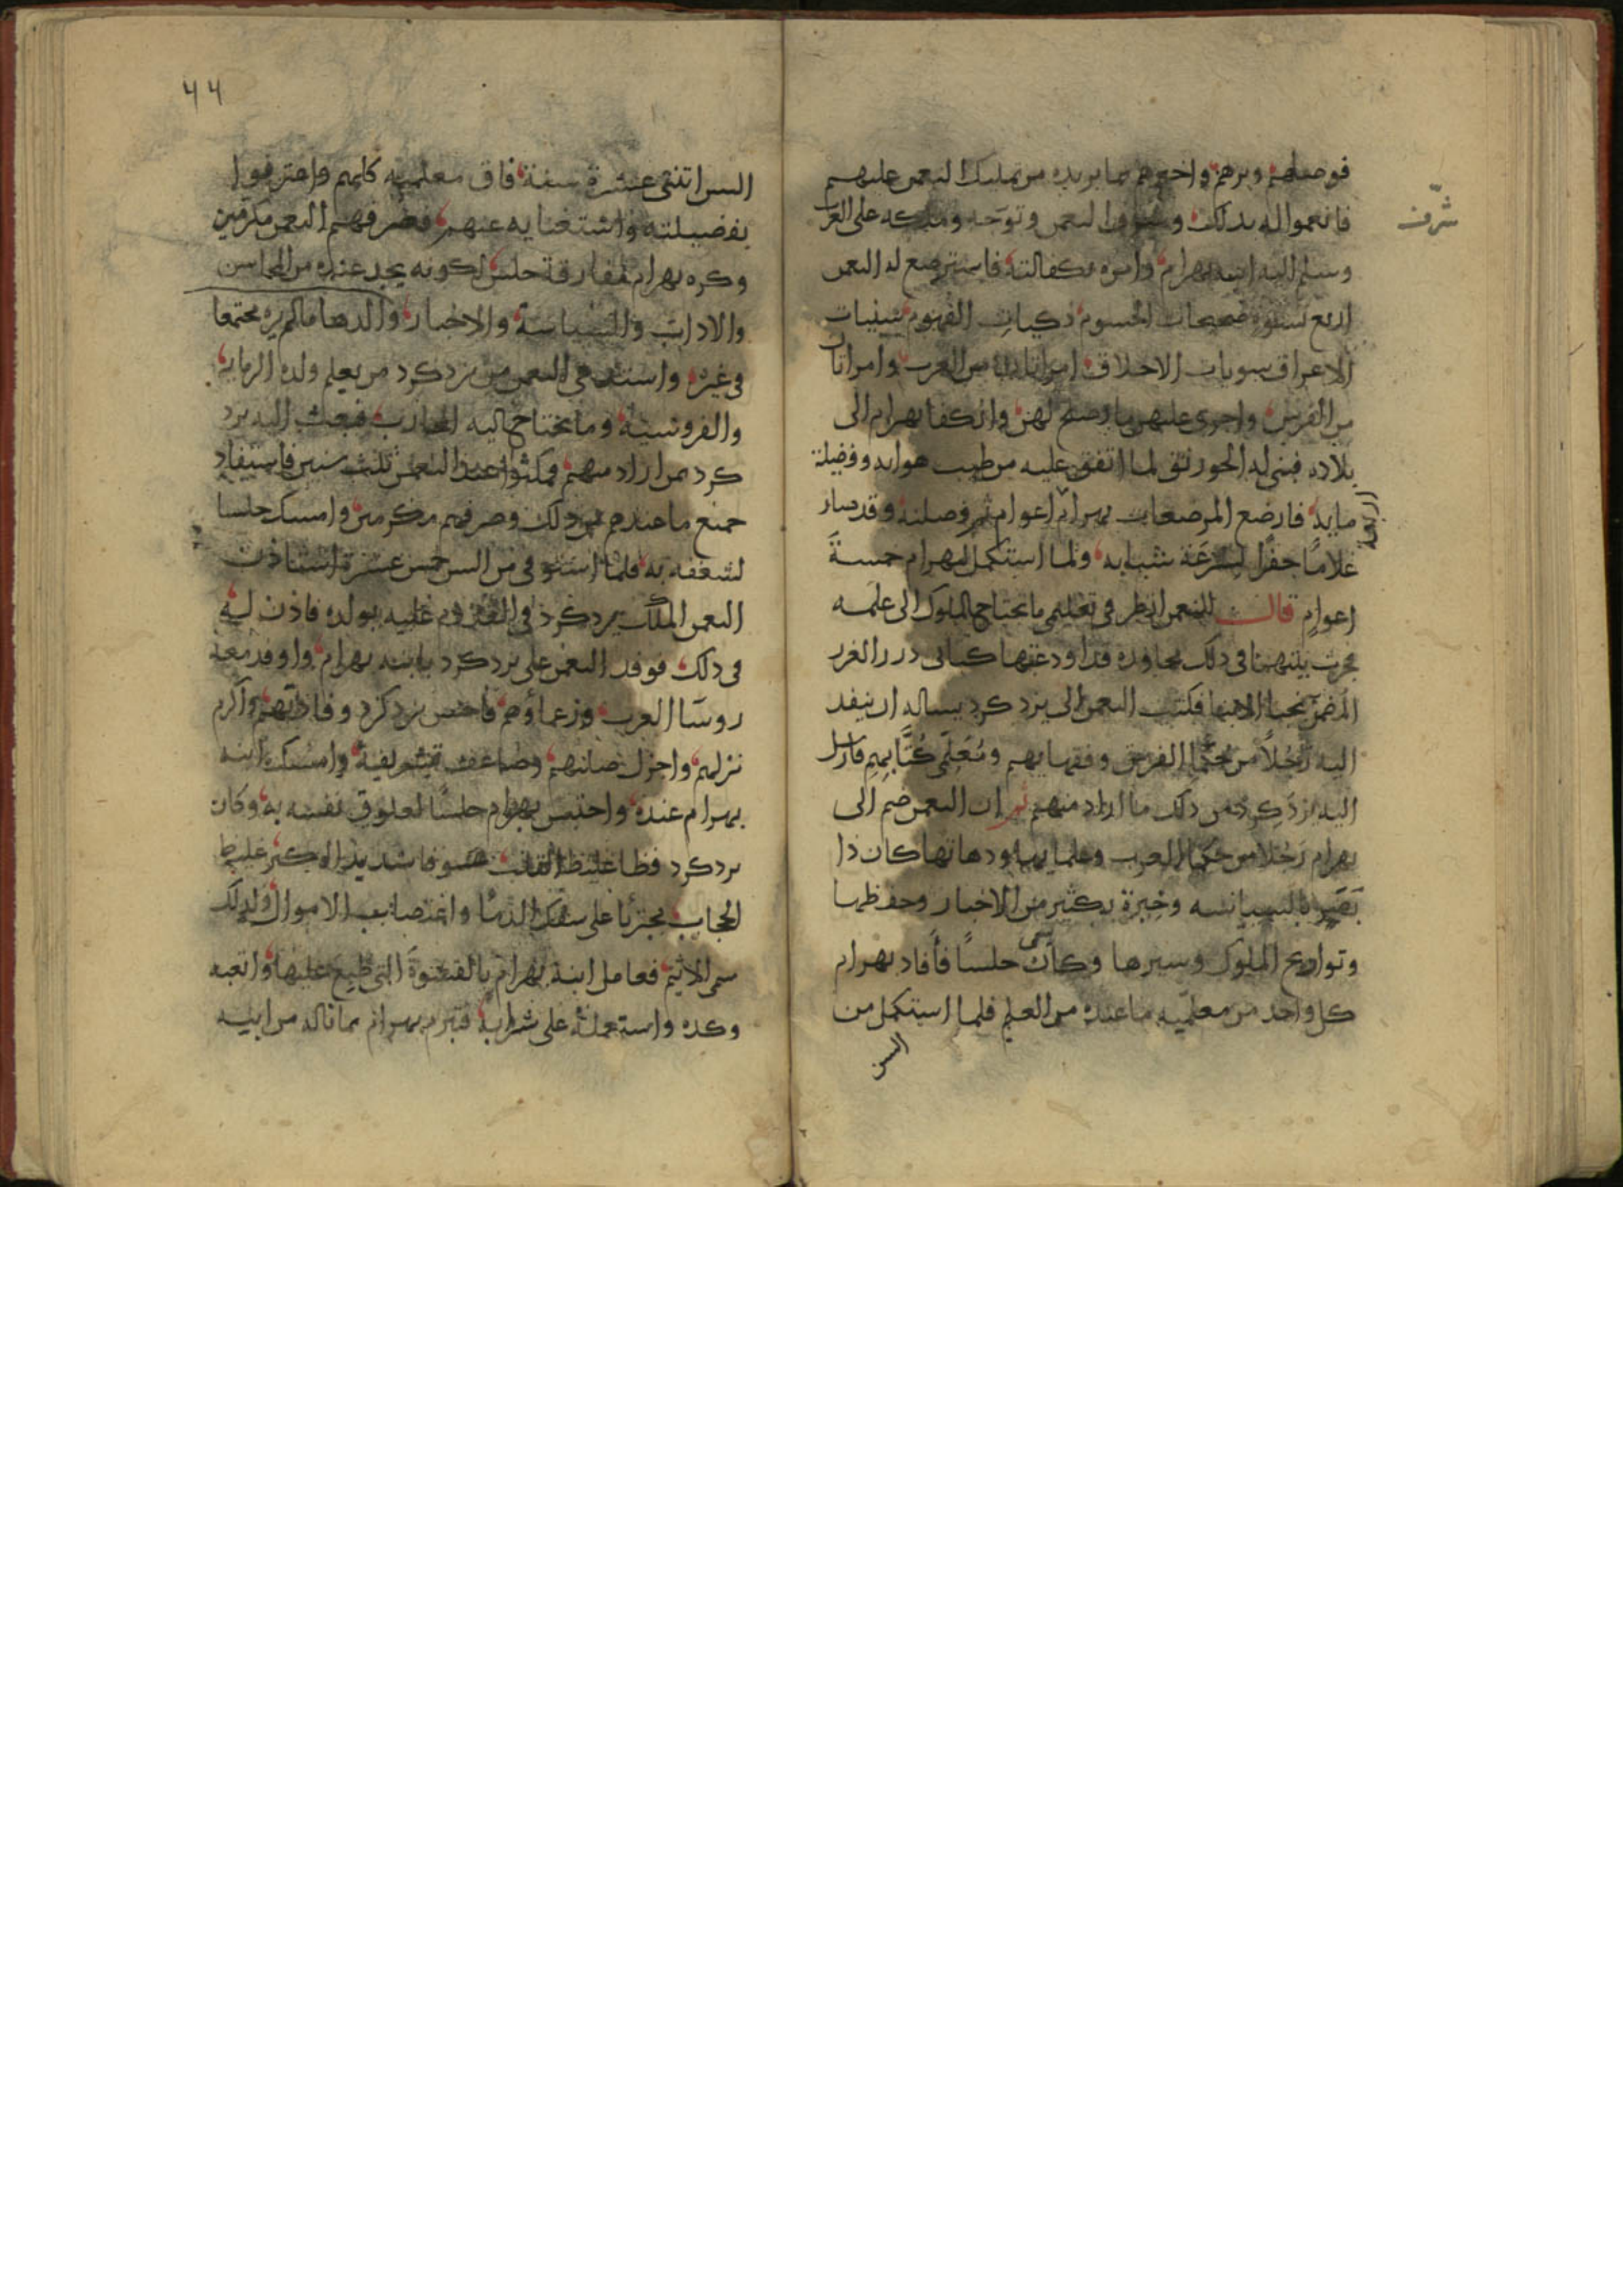 فوصلهم وبرهم واخبرهم بما يريده من تمليك النعمن عليهم
فانعموا له بذلك وشرفوا النعمن وتوجه وملكه على العرب
شرّف
وسلم اليه ابنه بهرام وامره بكفالته فاسترضع له النعمن
اربع نسوة صحيحات الجسوم ذكيات الفهوم
الاعراق سويات الاخلاق امراتان من العرب وامراتان
من الفرس واجرى عليهن ما يصلح لهن وانكفا بهرام الى
بلاده فبنى له الخورنق لما اتفق عليه من طيب هوايه وفضيلة
مايه فارضع المرضعات بهرام اعوام ثم فصلنه وقد صار
اربعة
غلامًا جفرًا لسرعة شبابه ولما استكمل بهرام خمسة
اعوام قال للنعمن انظر في تعليمي ما تحتاج الملوك الى علمه
فجرت بينهما في ذلك محاوره قد اودعتها كتابي درر الغرر
المضمن نجبا الابنا فكتب النعمن الى يزدكرد يساله ان ينفد
اليه رجلاً من حكما الفرس وفقهايهم ومعلمي كُتّابهم فارسل
اليه يزدكرد من ذلك ما اراد منهم ثم ان النعمن ضم الى
بهرام رجلا من حكما العرب وعلمايها ودهاتها كان ذا
بَصَر بالسياسه وخبرة بكثير من الاخبار وحفظها
وتواريخ الملوك وسيرها وكان يسمى حلسًا فأفاد بهرام
كل واحد من معلميه ما عنده من العلم فلما استكمل من
السن
٤٤
السن اثنتي عشرة سنة فاق معلميه كلهم واعترفوا
بفضيلته واستغنايه عنهم فصرفهم النعمن مكرمين
وكره بهرام مفارقة حلس لكونه يجد عنده من المحاسن
والاداب والسياسة والاخبار والدها ما لم يره مجتمعا
في غيره واستدعى النعمن من يزدكرد من يعلم ولده الرمايه
والفروسية وما يحتاج اليه المحارب فبعث اليه يزد
كرد من اراد منهم ومكثوا عند النعمن ثلث سنين فاستفاد
جميع ما عندهم من ذلك وصرفهم مكرمين وامسك حلسا
لشغفه به فلما استوفى من السن خمس عشرة استاذن
النعمن الملك يزدكرد في القدوم عليه بولده فاذن له
في ذلك فوفد النعمن على يزدكرد بابنه بهرام واوفد معه
روسا العرب وزعماؤهم فاحسن يزدكرد وفادتهم واكرم
نزلهم واجزل صلاتهم وضاعف تشريفه وامسك ابنه
بهرام عنده واحتبس بهرام حلسًا لعلوق نفسه به وكان
يزدكرد فظا غليظ القلب عسوفا شديد الكبر غليظ
الحجاب مجترئا على سفك الدما واغتصاب الاموال ولذلك
سمي الاثيم فعامل ابنه بهرام بالقسوة التي طبع عليها واتعبه
وكده واستعمله على شرابه فتبرم بهرام بما ناله من ابيه